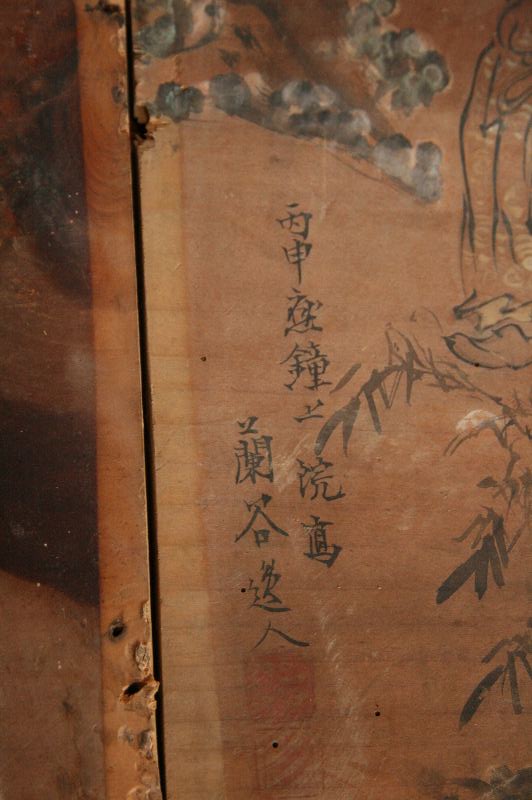 丙申應鐘上院寫
蘭谷逸人